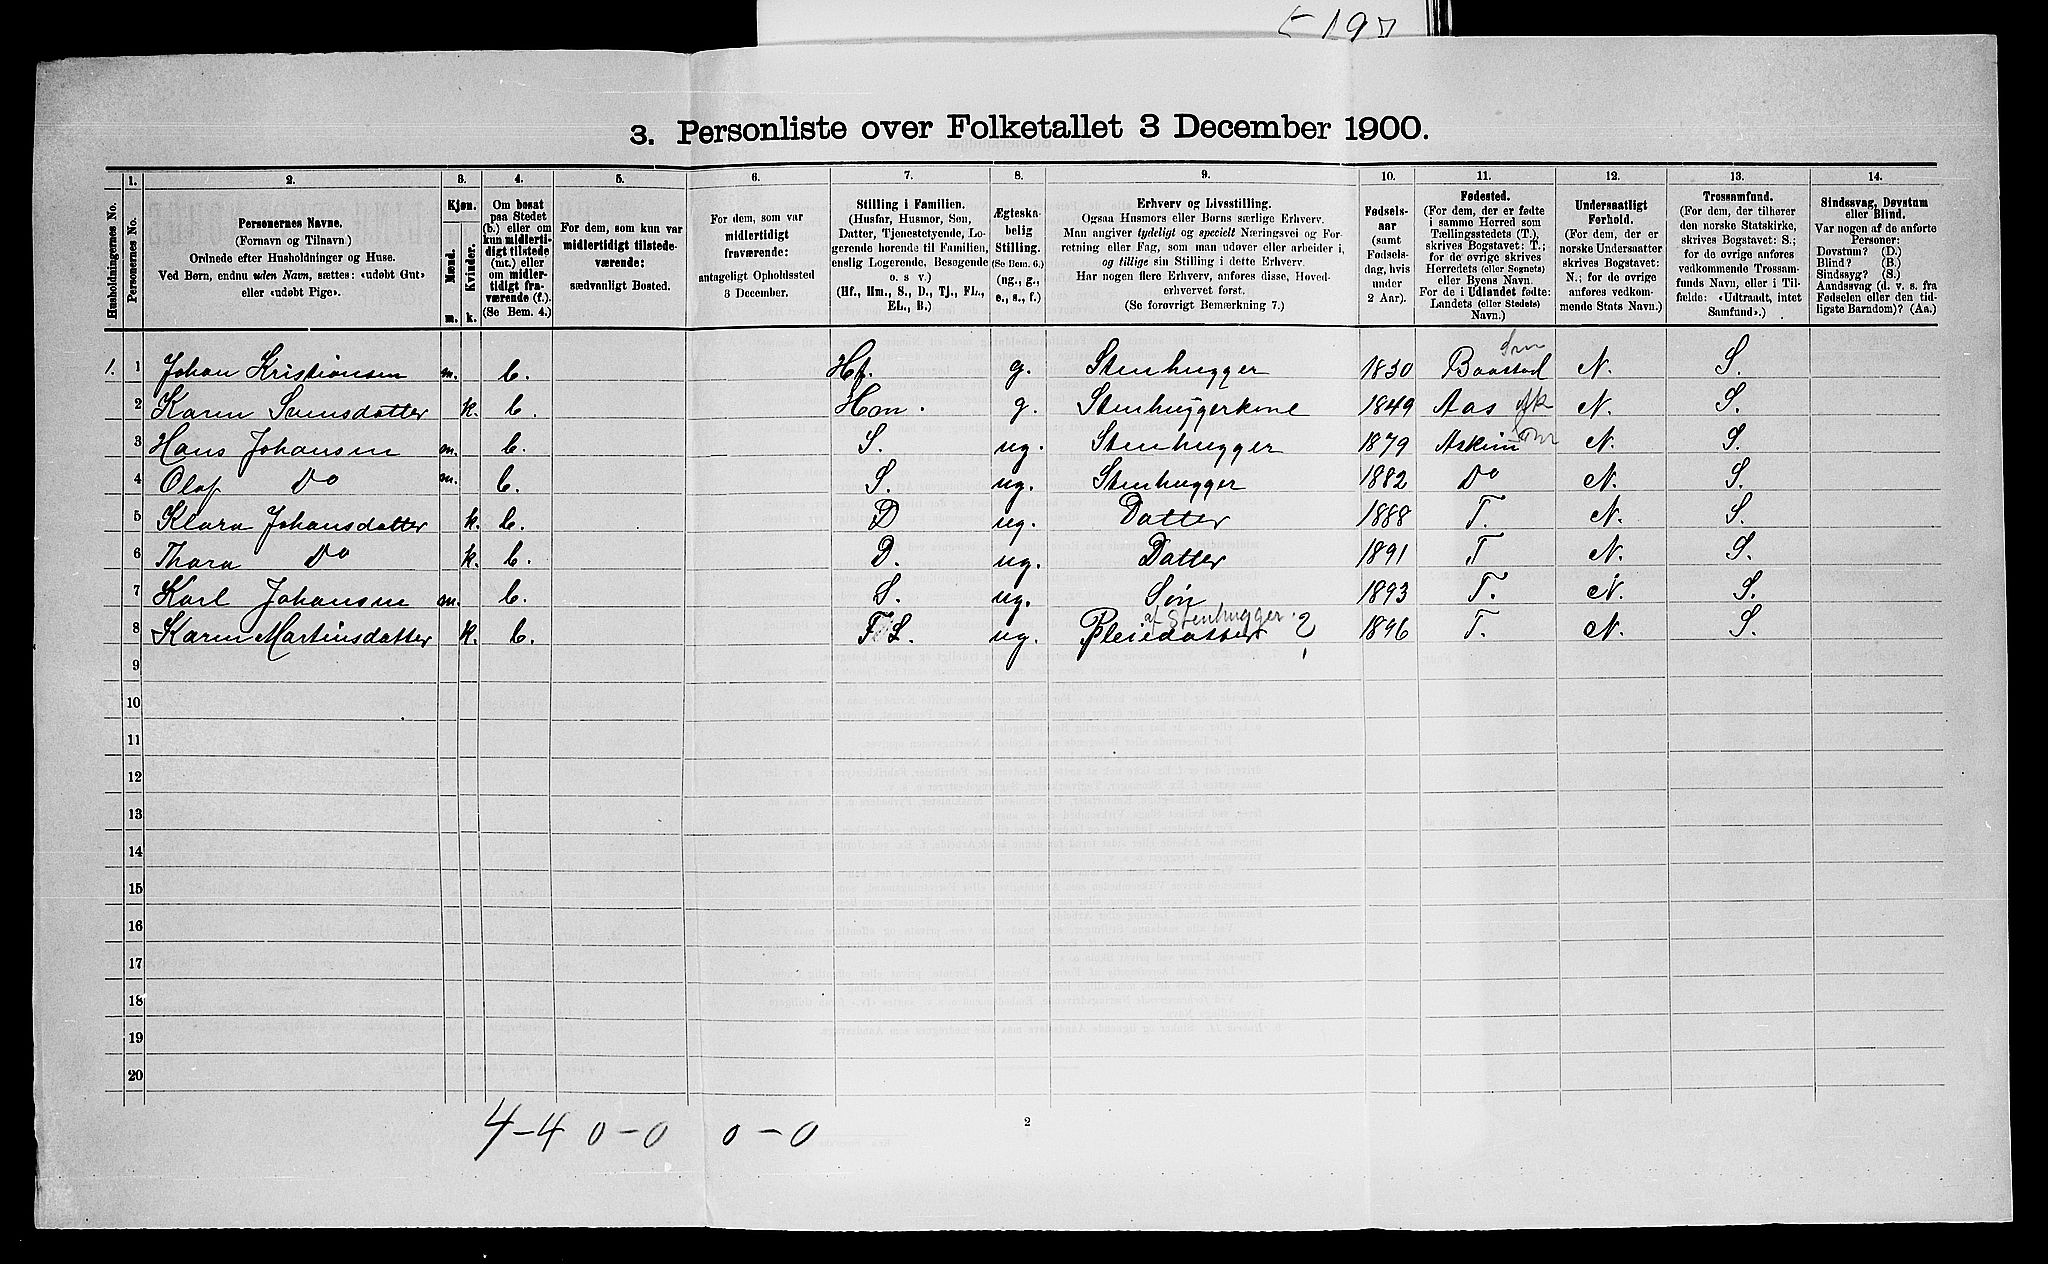 3. Personliste over Folketallet 3 December 1900.
1. 2. 3. 4. 5. 6. 7. 8. 9. 10. 11. 12. 13. 14.
Husholdningernes No.
Personernes No.
Personernes Navne.
(Fornavn og Tilnavn)
Ordnede efter Husholdninger og Huse.
Ved Børn, endnu uden Navn, sættes: «udøbt Gut»
eller «udøbt Pige».
Kjøn.
Mænd.
Kvinder.
m. k.
Om bosat
paa Stedet
(b.) eller om
kun midlerti-
digt tilstede
(mt.) eller
om midler-
tidigt fra-
værende (f.).
(Se Bem. 4.)
For dem, som kun var
midlertidigt tilstede-
værende:
sædvanligt Bosted.
For dem, som var
midlertidigt
fraværende:
antageligt Opholdssted
3 December.
Stilling i Familien.
(Husfar, Husmor, Søn,
Datter, Tjenestetyende, Lo-
gerende hørende til Familien,
enslig Logerende, Besøgende
o. s. v.)
(Hf., Hm., S., D., Tj., FL.,
EL., B.)
Ægteska-
belig
Stilling.
(Se Bem. 6.)
(ug., g.,
e., s., f.)
Erhverv og Livsstilling.
Ogsaa Husmors eller Børns særlige Erhverv.
Man angiver tydeligt og specielt Næringsvei og For-
retning eller Fag, som man udøver eller arbeider i,
og tillige sin Stilling i dette Erhverv.
Har nogen flere Erhverv, anføres disse, Hoved-
erhvervet først.
(Se forøvrigt Bemærkning 7.)
Fødsels-
aar
(samt
Fødsels-
dag, hvis
under
2 Aar).
Fødested.
(For dem, der er fødte
i samme Herred som
Tællingsstedets (T.),
skrives Bogstavet: T.;
for de øvrige skrives
Herredets (eller Sognets)
eller Byens Navn.
For de i Udlandet fødte:
Landets (eller Stedets)
Navn.)
Undersaatligt
Forhold.
(For dem, der er
norske Undersaatter
skrives Bogstavet:
N.; for de øvrige
anføres vedkom-
mende Stats Navn.)
Trossamfund.
(For dem, der tilhører
den norske Statskirke,
skrives Bogstavet: S.;
for de øvrige anføres
vedkommende Trossam-
funds Navn, eller i Til-
fælde: «Udtraadt, intet
Samfund».)
Sindssvag, Døvstum
eller Blind.
Var nogen af de anførte
Personer:
Døvstum? (D.)
Blind? (B.)
Sindssyg? (S.)
Aandssvag (d. v. s. fra
Fødselen eller den tid-
ligste Barndom)? (Aa.)
1. 1 Johan Kristiansen m. b. Hf. g. Stenhugger 1830 Baastad Sm N. S.
2 Karen Svensdatter k. b. Hm. g. Stenhuggerkone 1849 Aas Ak N. S.
3 Hans Johansen m. b. S. ug. Stenhugger 1879 Askim N. S.
4 Olaf Do m. b. S. ug. Stenhugger 1882 Do N. S.
5 Klara Johansdatter k. b. D ug. Datter 1888 T. N. S.
6 Thora Do k. b. D. ug. Datter 1891 T N. S.
7 Karl Johansen m. b. S. ug. Søn 1893 T. N. S.
af Stenhugger
8 Karen Martinsdatter k. b. F L. ug. Pleiedatter ? 1896 T. N. S.
9
10
11
12
13
14
15
16
17
18
19
20
4-4 0-0 0-0
2